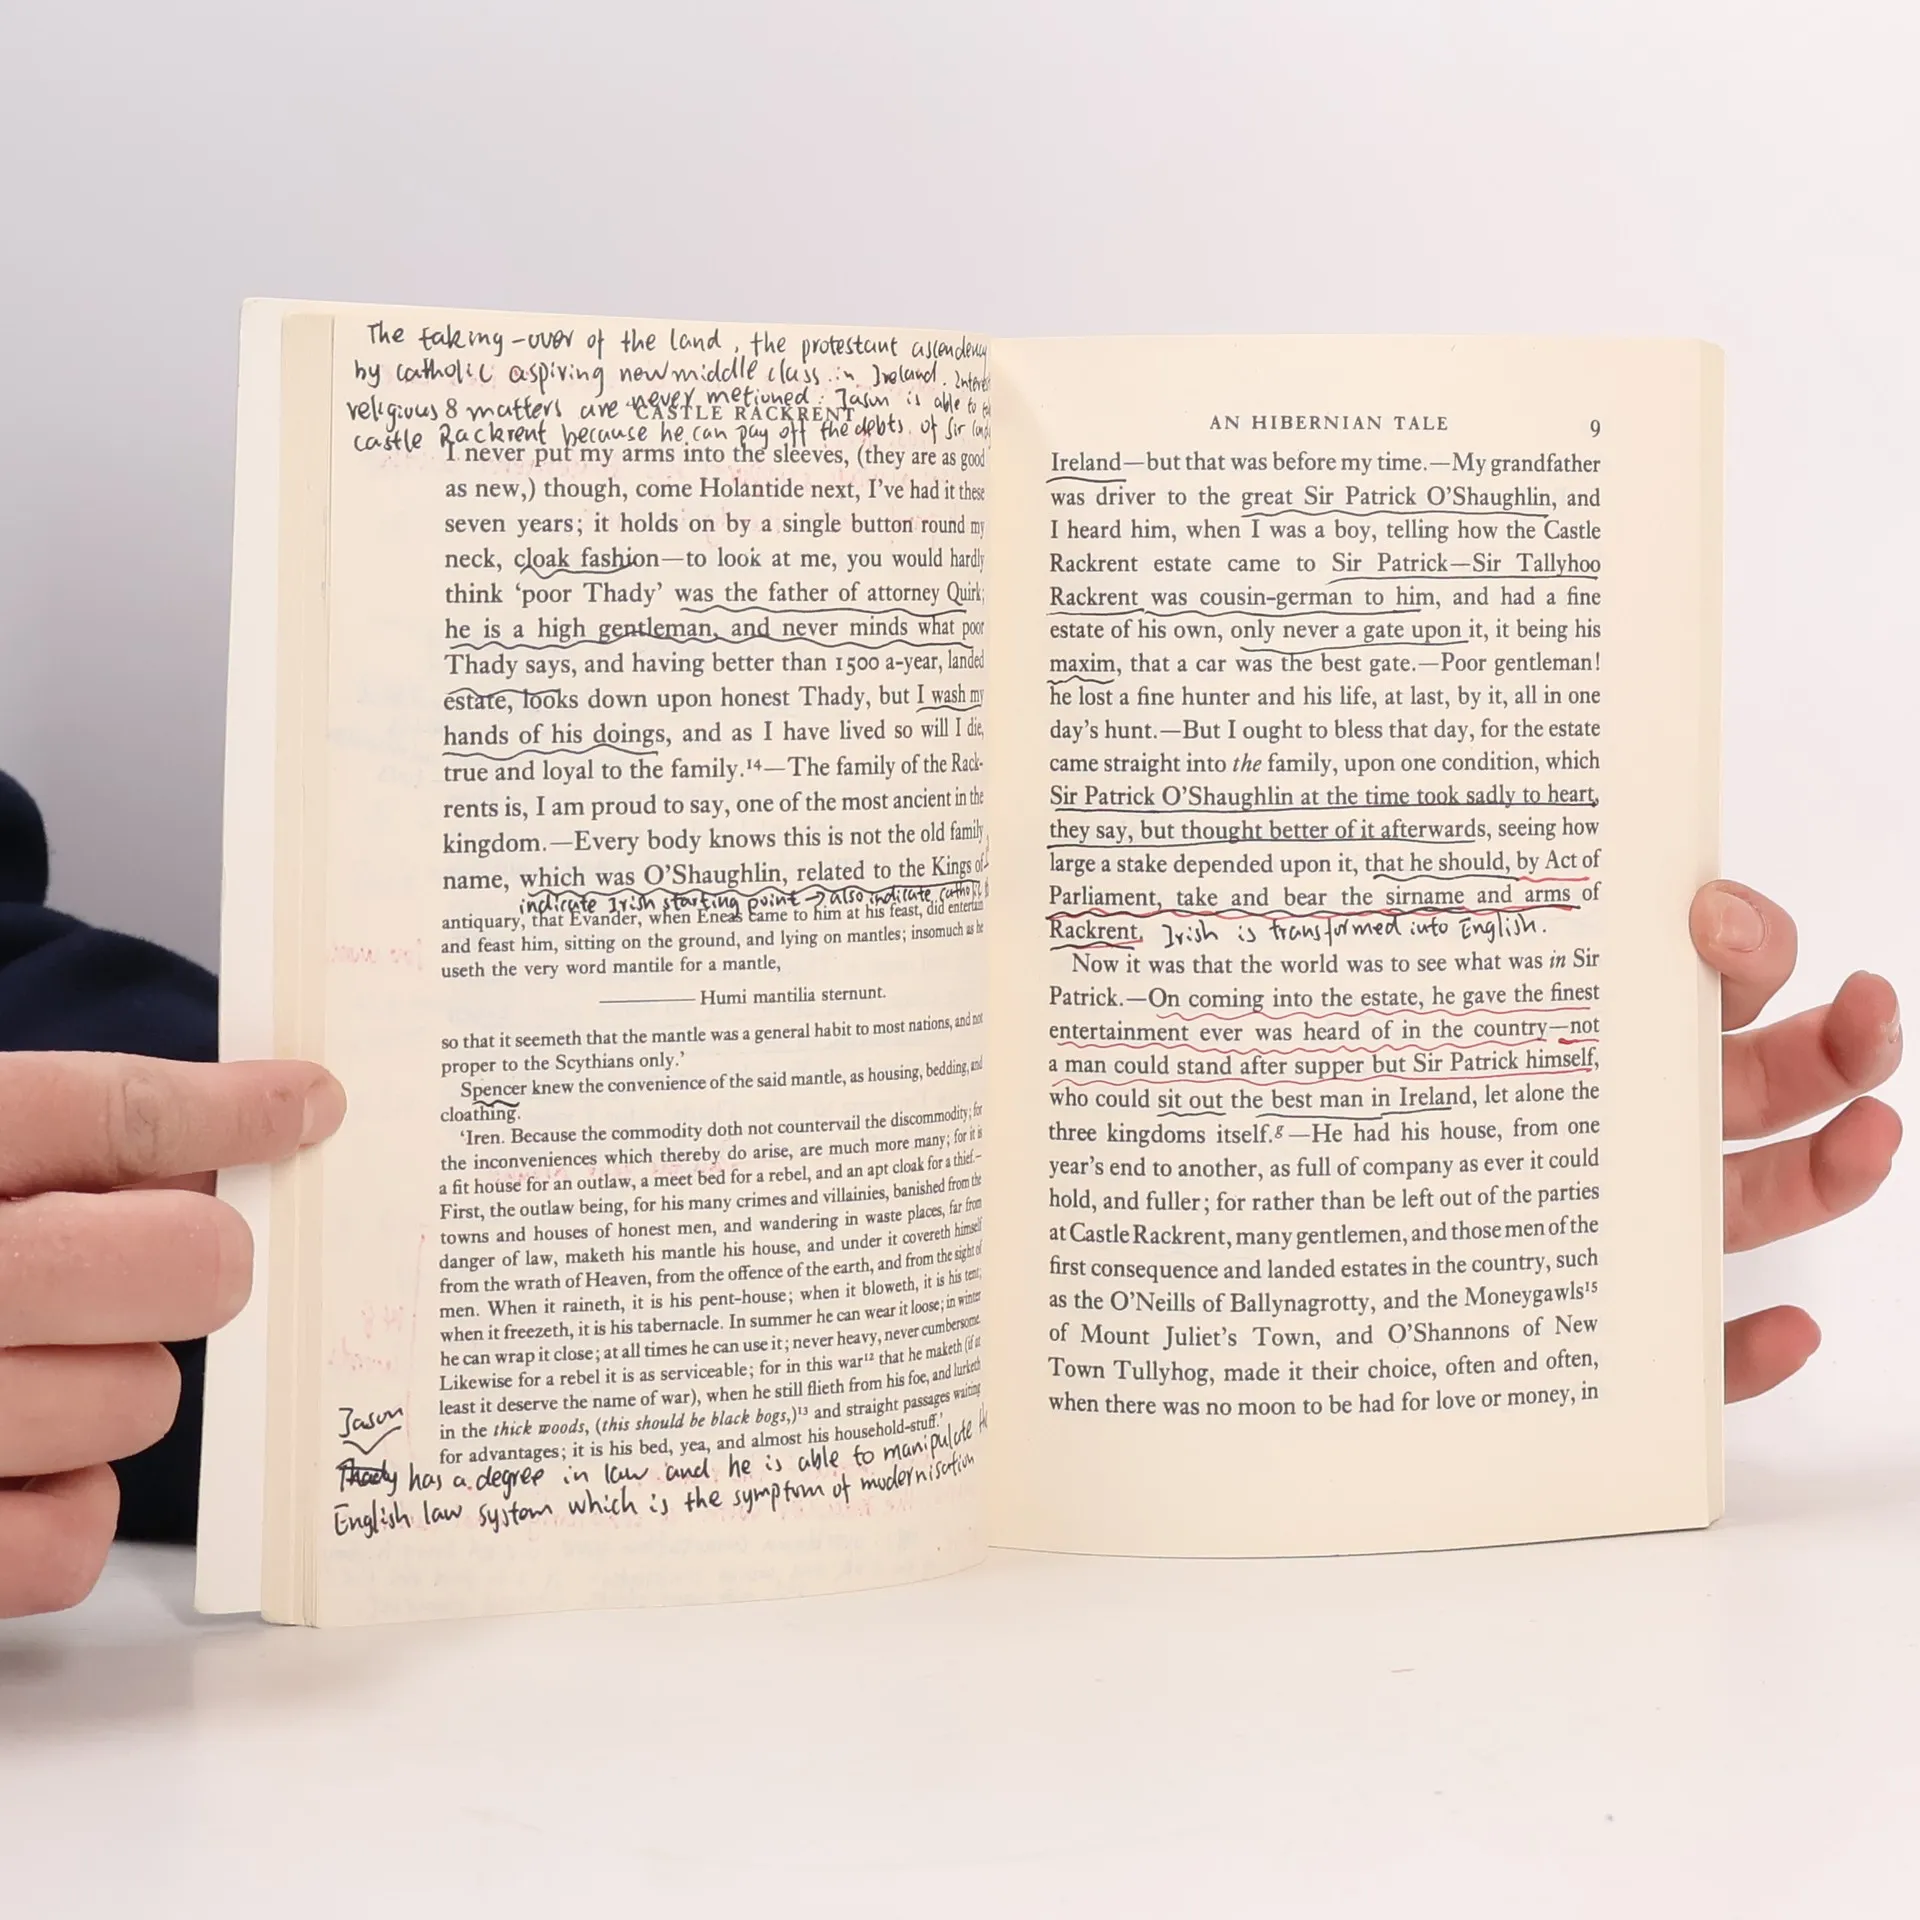 The taking-over of the land, the protestant ascendency
by catholic aspiring new middle class in Ireland.
religious matters are never metioned. Jason is able to
castle Rackrent because he can pay off the debts of Sir
8 CASTLE RACKRENT
I never put my arms into the sleeves, (they are as good
as new,) though, come Holantide next, I've had it these
seven years; it holds on by a single button round my
neck, cloak fashion—to look at me, you would hardly
think ‘poor Thady’ was the father of attorney Quirk;
he is a high gentleman, and never minds what poor
Thady says, and having better than 1500 a-year, landed
estate, looks down upon honest Thady, but I wash my
hands of his doings, and as I have lived so will I die,
true and loyal to the family.14—The family of the Rack-
rents is, I am proud to say, one of the most ancient in the
kingdom.—Every body knows this is not the old family
name, which was O'Shaughlin, related to the Kings of
indicate Irish starting point → also indicate catholic
antiquary, that Evander, when Eneas came to him at his feast, did entertain
and feast him, sitting on the ground, and lying on mantles; insomuch as he
useth the very word mantile for a mantle,
——— Humi mantilia sternunt.
so that it seemeth that the mantle was a general habit to most nations, and not
proper to the Scythians only.’
Spencer knew the convenience of the said mantle, as housing, bedding, and
cloathing.
‘Iren. Because the commodity doth not countervail the discommodity; for
the inconveniences which thereby do arise, are much more many; for it is
a fit house for an outlaw, a meet bed for a rebel, and an apt cloak for a thief.–
First, the outlaw being, for his many crimes and villainies, banished from the
towns and houses of honest men, and wandering in waste places, far from
danger of law, maketh his mantle his house, and under it covereth himself
from the wrath of Heaven, from the offence of the earth, and from the sight of
men. When it raineth, it is his pent-house; when it bloweth, it is his tent;
when it freezeth, it is his tabernacle. In summer he can wear it loose; in winter
he can wrap it close; at all times he can use it; never heavy, never cumbersome.
Likewise for a rebel it is as serviceable; for in this war12 that he maketh (if at
least it deserve the name of war), when he still flieth from his foe, and lurketh
in the thick woods, (this should be black bogs,)13 and straight passages waiting
for advantages; it is his bed, yea, and almost his household-stuff.’
Jason
Thady has a degree in law and he is able to manipulate the
English law system which is the symptom of modernisation
AN HIBERNIAN TALE 9
Ireland—but that was before my time.—My grandfather
was driver to the great Sir Patrick O'Shaughlin, and
I heard him, when I was a boy, telling how the Castle
Rackrent estate came to Sir Patrick—Sir Tallyhoo
Rackrent was cousin-german to him, and had a fine
estate of his own, only never a gate upon it, it being his
maxim, that a car was the best gate.—Poor gentleman!
he lost a fine hunter and his life, at last, by it, all in one
day's hunt.—But I ought to bless that day, for the estate
came straight into the family, upon one condition, which
Sir Patrick O'Shaughlin at the time took sadly to heart,
they say, but thought better of it afterwards, seeing how
large a stake depended upon it, that he should, by Act of
Parliament, take and bear the sirname and arms of
Rackrent. Irish is transformed into English.
Now it was that the world was to see what was in Sir
Patrick.—On coming into the estate, he gave the finest
entertainment ever was heard of in the country—not
a man could stand after supper but Sir Patrick himself,
who could sit out the best man in Ireland, let alone the
three kingdoms itself.g—He had his house, from one
year's end to another, as full of company as ever it could
hold, and fuller; for rather than be left out of the parties
at Castle Rackrent, many gentlemen, and those men of the
first consequence and landed estates in the country, such
as the O'Neills of Ballynagrotty, and the Moneygawls15
of Mount Juliet's Town, and O'Shannons of New
Town Tullyhog, made it their choice, often and often,
when there was no moon to be had for love or money, in